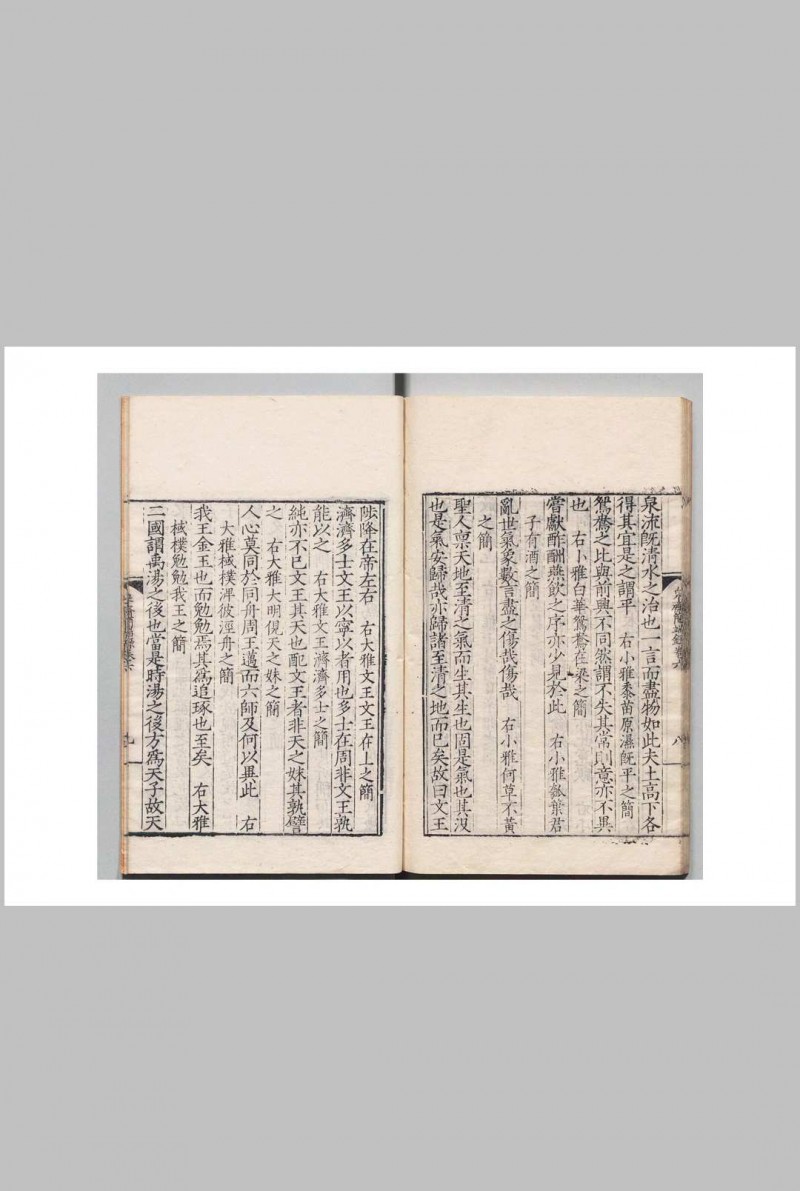 泉流既清水之治也一言而盡物如此夫土高下各
得其宜是之謂平　右小雅黍苗原濕既平之簡
鴛鴦之比與前興不同然謂不失其常則意亦不異
也　右小雅白華鴛鴦在梁之簡
嘗獻酢酬燕飲之序亦少見於此　右小雅瓠葉君
子有酒之簡
亂世氣象數言盡之傷哉傷哉　右小雅何草不黃
之簡
聖人禀天地至清之氣而生其生也固是氣也其沒
也是氣安歸哉亦歸諸至清之地而已矣故曰文王
八
陟降在帝左右　右大雅文王文王在上之簡
濟濟多士文王以寧以者用也多士在周非文王孰
能以之　右大雅文王濟濟多士之簡
純亦不已文王其天也配文王者非天之妹其孰譬
之　右大雅大明俔天之妹之簡
人心莫同於同舟周王邁而六師及何以異此　右
大雅棫樸淠彼涇舟之簡
我王金玉也而勉勉焉其爲追琢也至矣　右大雅
棫樸勉勉我王之簡
二國謂禹湯之後也當是時湯之後方爲天子故天
九